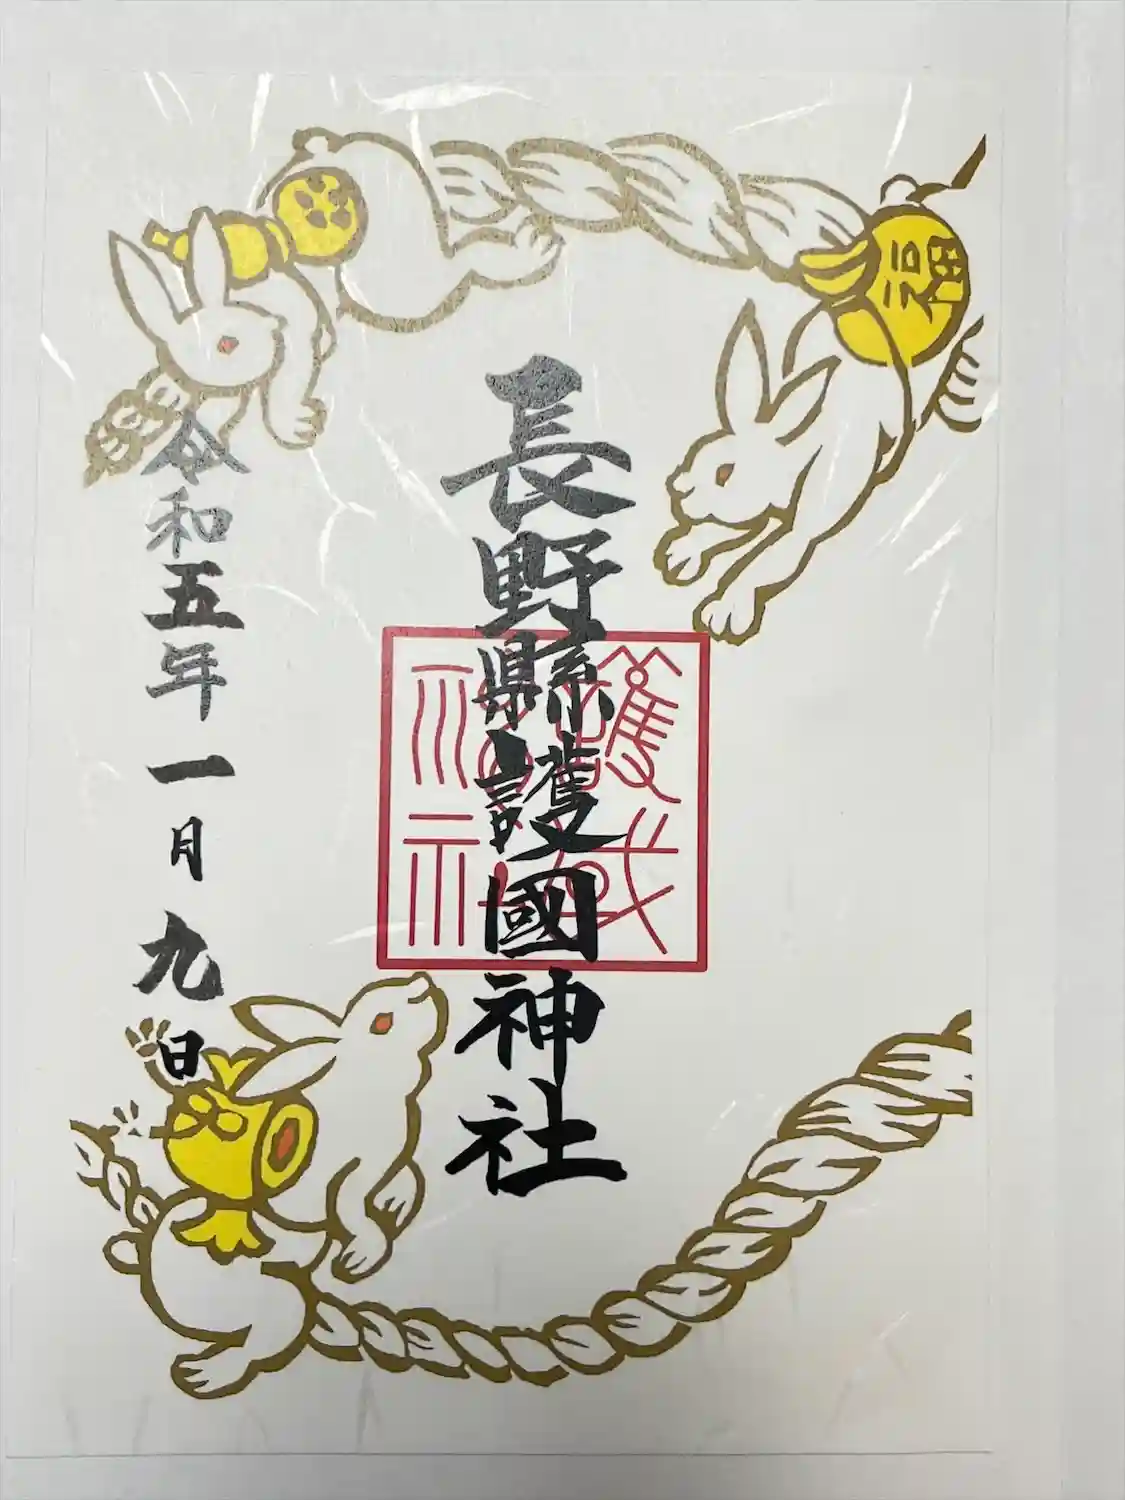 福
長野縣護國神社
令和五年一月九日